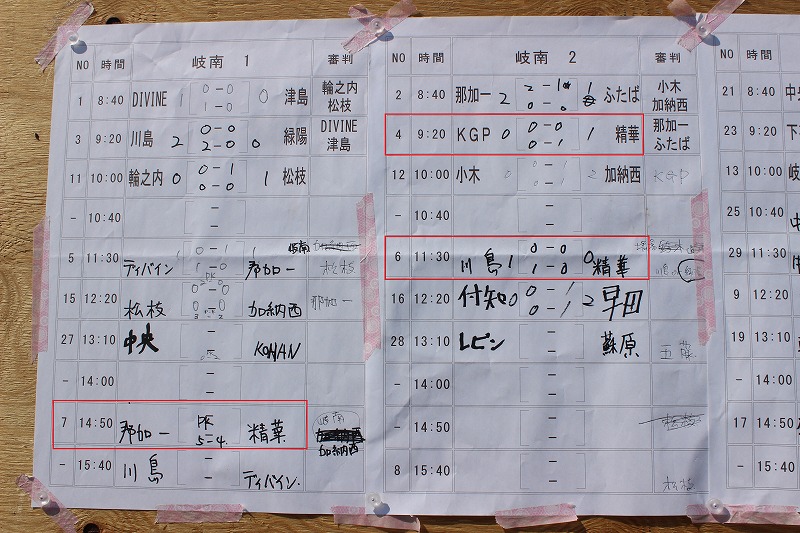 NO 時間 岐南 1 審判
1 8:40 DIVINE 1 0-0 1-0 0 津島 輪之内 松枝
3 9:20 川島 2 0-0 2-0 0 緑陽 DIVINE 津島
11 10:00 輪之内 0 0-1 0-0 1 松枝
- 10:40 -
5 11:30 ディバイン 1 0-1 1-0 1 那加一 岐南 松枝
15 12:20 松枝 0-0 0-0 加納西 那加一
27 13:10 中央 - KONAN
- 14:00 -
7 14:50 那加一 PK 5-4 精華 岐南 加納西
- 15:40 川島 - ディバイン.
NO 時間 岐南 2 審判
2 8:40 那加一 2 2-1 0-0 1 ふたば 小木 加納西
4 9:20 KGP 0 0-0 0-1 1 精華 那加一 ふたば
12 10:00 小木 0 0-1 0-1 2 加納西 KGP
- 10:40 -
6 11:30 川島 1 0-0 1-0 0 精華
16 12:20 付知 0 0-1 0-1 2 早田
28 13:10 レビン - 蘇原
- 14:00 -
- 14:50 -
8 15:40 - 松枝
NO 時間
21 8:40 中
23 9:20 下
13 10:00 岐
25 10:40 中
29 11:30
9 12:20
19 13:10
- 14:00
17 14:50
- 15:40